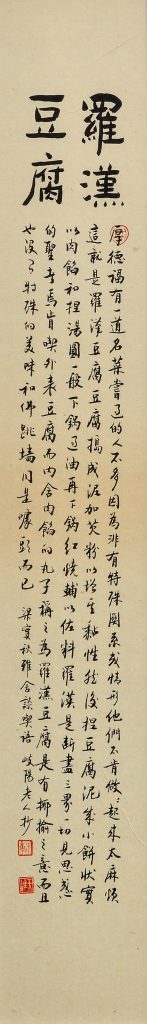 羅漢
豆腐
厚德福有一道名菜嘗過的人不多因為非有特殊關系或情形他們不肯做做起來太麻煩
這就是羅漢豆腐豆腐搗成泥加芡粉以增其黏性然後捏豆腐泥成小餅狀實
以肉餡和捏湯團一般下鍋過油再下鍋紅燒輔以佐料羅漢是斷盡三界一切見思惑
的聖者焉肯喫外表豆腐而內含肉餡的丸子稱之為羅漢豆腐是有揶揄之意而且
也沒有特殊的美味和佛跳墻同是噱頭而已 梁實秋雅舍談喫語 岐陽老人抄